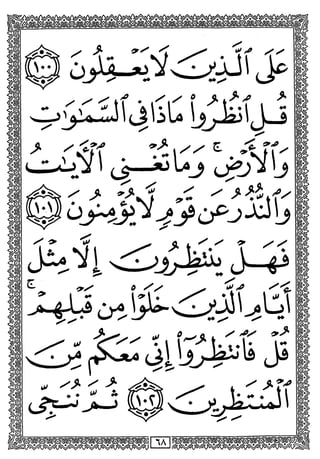 عَلَى ٱلَّذِينَ لَا يَعۡقِلُونَ ١٠٠
قُلِ ٱنظُرُواْ مَاذَا فِي ٱلسَّمَٰوَٰتِ
وَٱلۡأَرۡضِۚ وَمَا تُغۡنِي ٱلۡأٓيَٰتُ
وَٱلنُّذُرُ عَن قَوۡمٖ لَّا يُؤۡمِنُونَ ١٠١
فَهَلۡ يَنتَظِرُونَ إِلَّا مِثۡلَ
أَيَّامِ ٱلَّذِينَ خَلَوۡاْ مِن قَبۡلِهِمۡۚ
قُلۡ فَٱنتَظِرُوٓاْ إِنِّي مَعَكُم مِّنَ
ٱلۡمُنتَظِرِينَ ١٠٢ ثُمَّ نُنَجِّي
٦٨